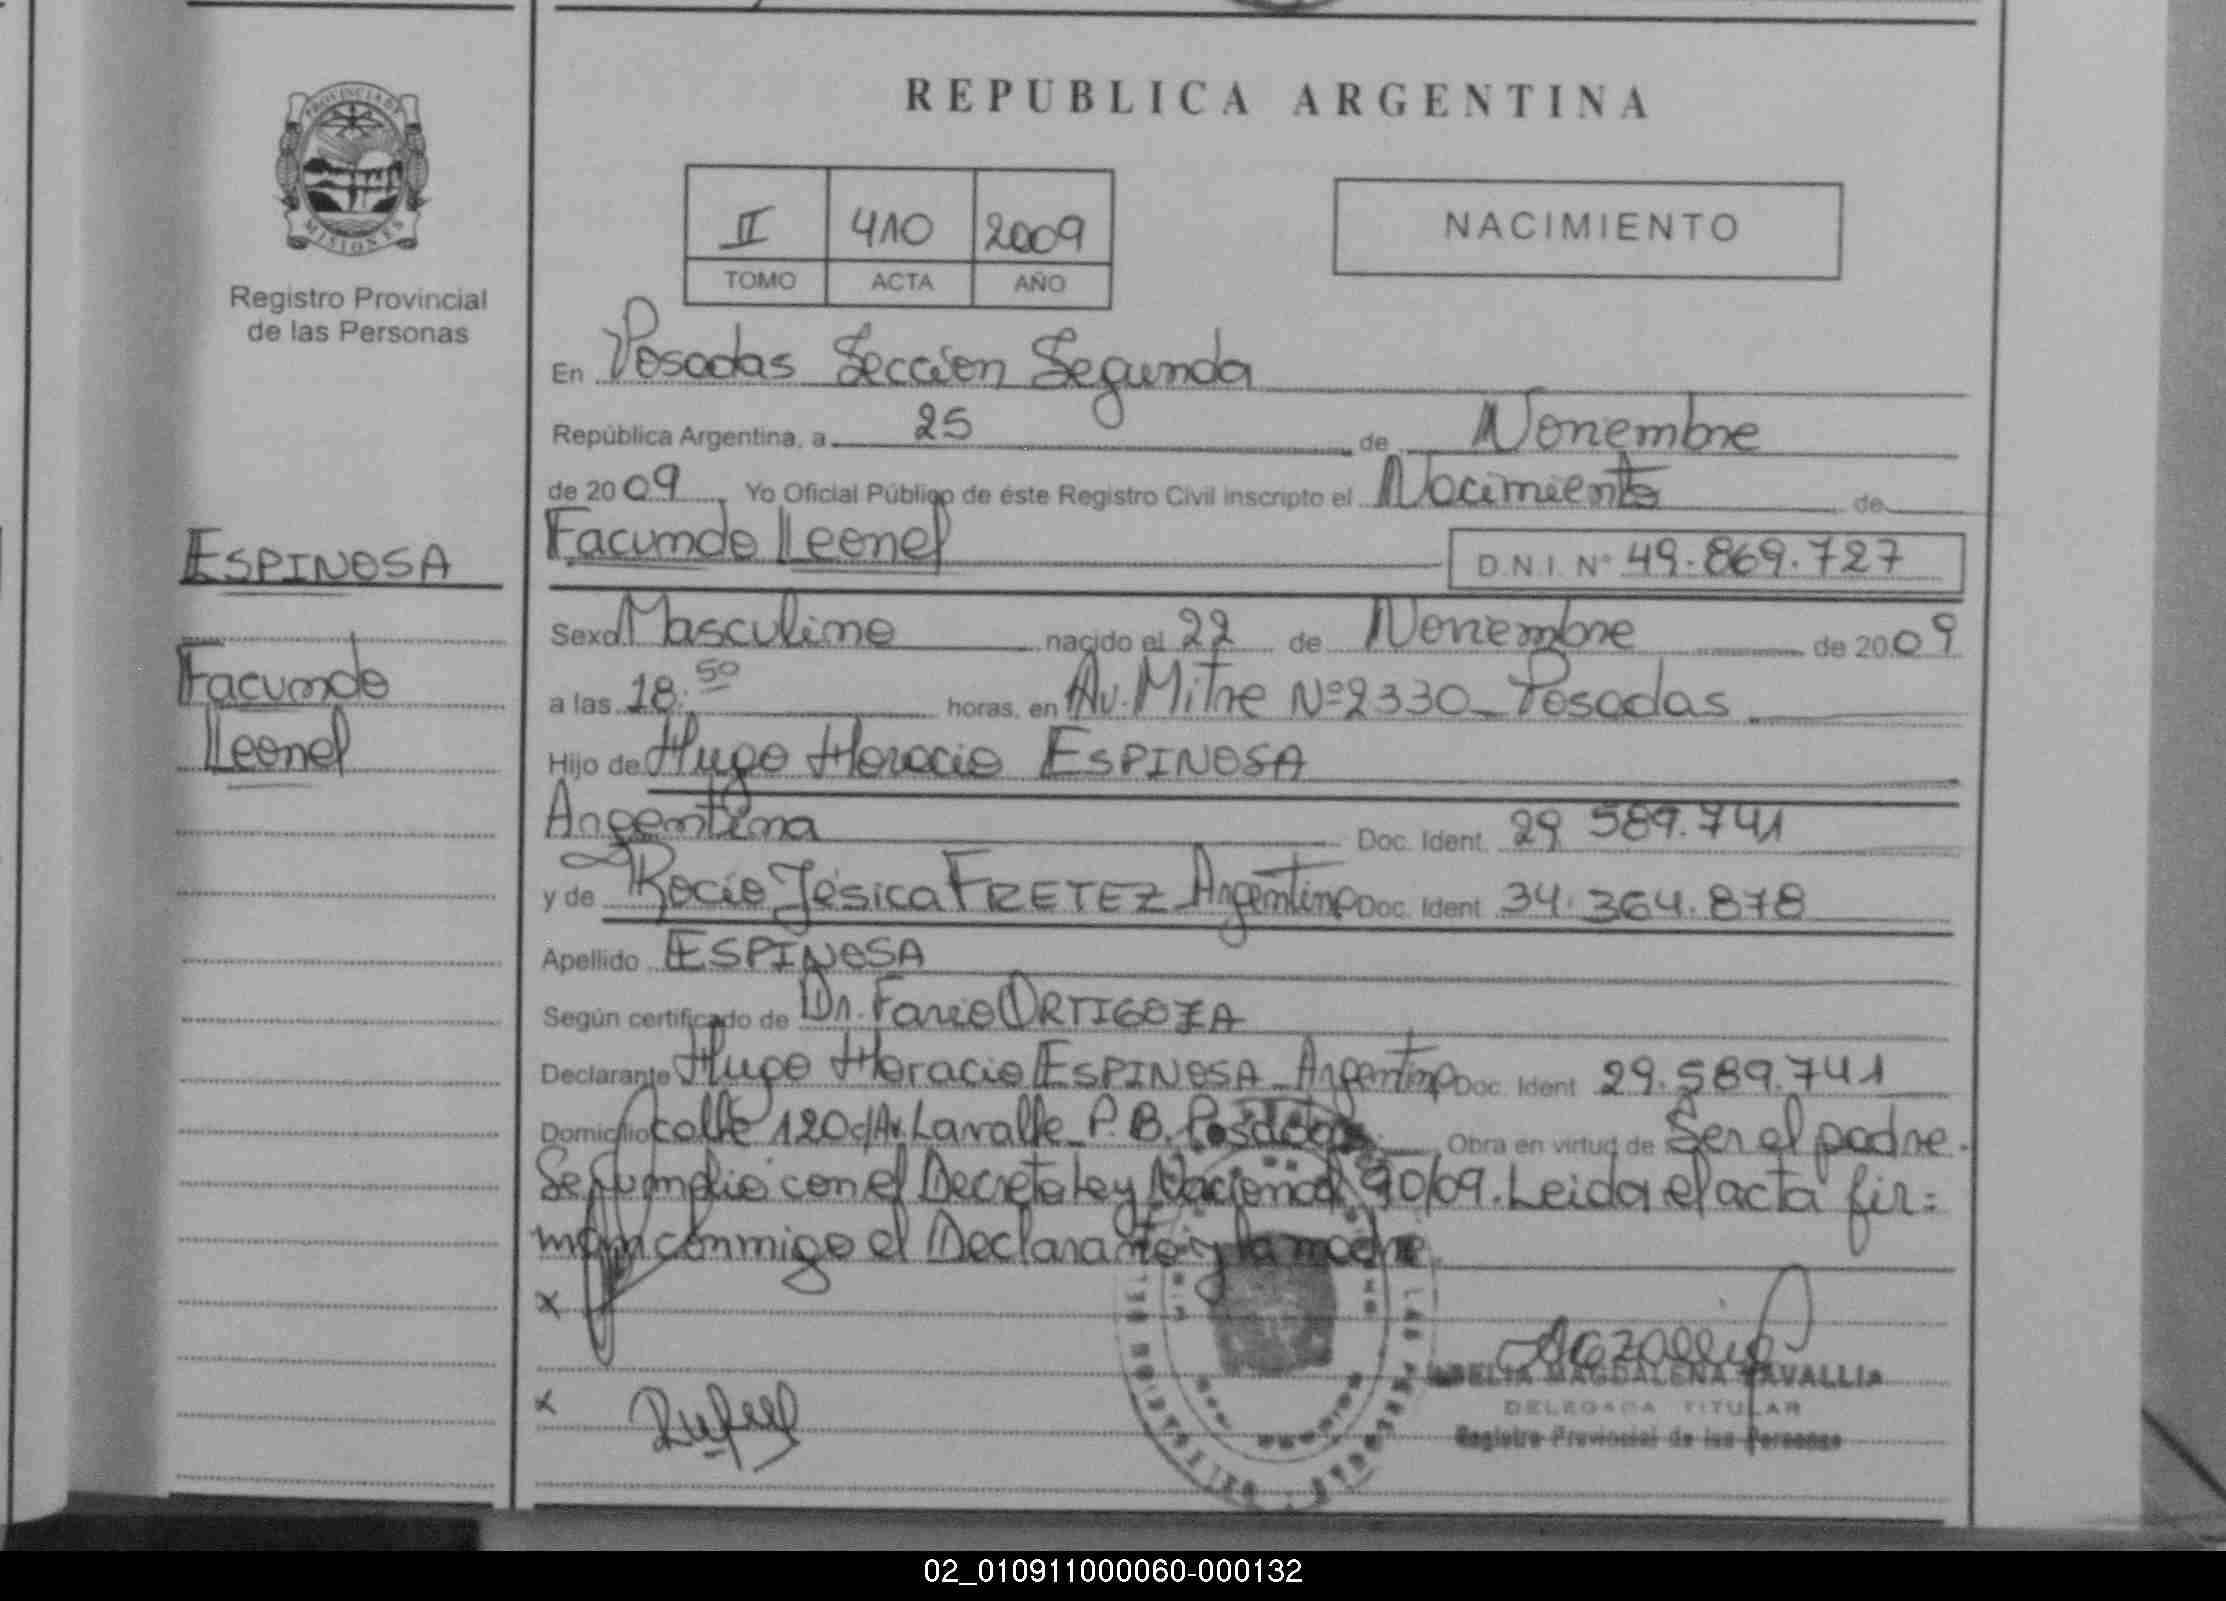 REPUBLICA ARGENTINA
PROVINCIA DE
MISIONES
Registro Provincial
de las Personas
II 410 2009
TOMO ACTA AÑO
NACIMIENTO
En Posadas Seccion Segunda
República Argentina, a 25 de Noviembre
de 2009 Yo Oficial Público de éste Registro Civil inscripto el Nacimiento de
Facundo Leonel D.N.I. Nº 49.869.727
ESPINOSA
Facundo
Leonel
Sexo Masculino nacido el 22 de Noviembre de 2009
a las 18:50 horas, en Av. Mitre Nº 2330_ Posadas
Hijo de Hugo Horacio ESPINOSA
Argentina Doc. Ident. 29.589.741
y de Rocío Jésica FRETEZ Argentina Doc. Ident 34.364.878
Apellido ESPINOSA
Según certificado de Dr. ORTIGOZA
Declarante Hugo Horacio ESPINOSA_ Argentino Doc. Ident 29.589.741
Domicilio calle 120 c/Av. Lavalle_ P.B. Posadas Obra en virtud de Ser el padre.
Se cumplio con el Decreto Ley Nacional 90/09. Leida el acta fir=
man conmigo el Declarante y la madre.
x
x
MAGDALENA
DELEGADA TITULAR
Registro Provincial de las Personas
02_010911000060-000132